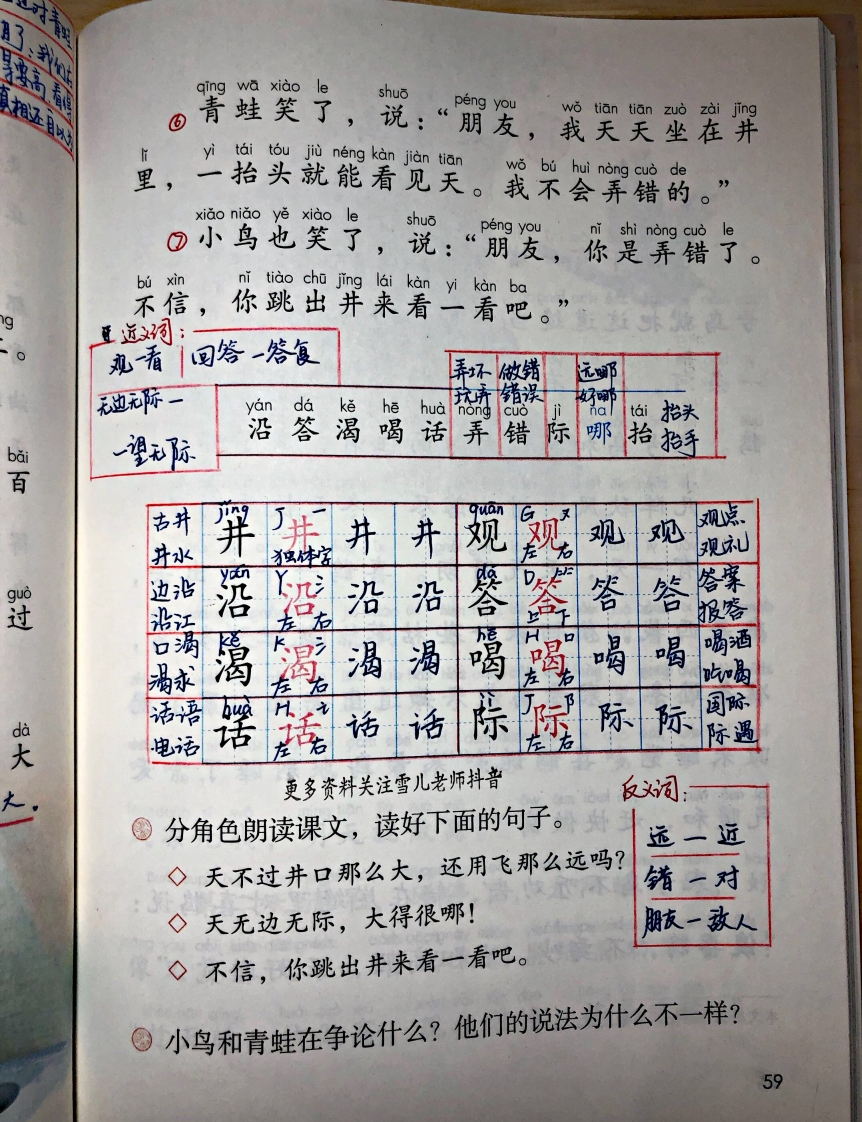 过时青蛙
看
真相还自以为
bǎi
百
guò
过
dà
大
大。
qīng wā xiào le shuō péng you wǒ tiān tiān zuò zài jǐng
⑥ 青蛙笑了，说：“朋友，我天天坐在井
lǐ yì tái tóu jiù néng kàn jiàn tiān wǒ bú huì nòng cuò de
里，一抬头就能看见天。我不会弄错的。”
xiǎo niǎo yě xiào le shuō péng you nǐ shì nòng cuò le
⑦ 小鸟也笑了，说：“朋友，你是弄错了。
bú xìn nǐ tiào chū jǐng lái kàn yi kàn ba
不信，你跳出井来看一看吧。”
近义词：
观—看 回答—答复
无边无际—
一望无际
弄坏 做错 远哪
玩弄 错误 好哪
yán dá kě hē huà nòng cuò jì na tái
沿 答 渴 喝 话 弄 错 际 哪 抬 抬头
抬手
jǐng guān
古井 井 J 一 井 井 井 观 G 又 观 观 观 观点
井水 独体字 左 右 观礼
yán dá
边沿 沿 Y 氵 沿 沿 沿 答 D 答 答 答 答案
沿江 左 右 上 下 报答
kě hē
口渴 渴 K 氵 渴 渴 渴 喝 H 口 喝 喝 喝 喝酒
渴求 左 右 左 右 吃喝
huà jì
话语 话 H 讠 话 话 话 际 J 阝 际 际 际 国际
电话 左 右 左 右 际遇
更多资料关注雪儿老师抖音
反义词：
远—近
错—对
朋友—敌人
分角色朗读课文，读好下面的句子。
◇ 天不过井口那么大，还用飞那么远吗？
◇ 天无边无际，大得很哪！
◇ 不信，你跳出井来看一看吧。
小鸟和青蛙在争论什么？他们的说法为什么不一样？
59